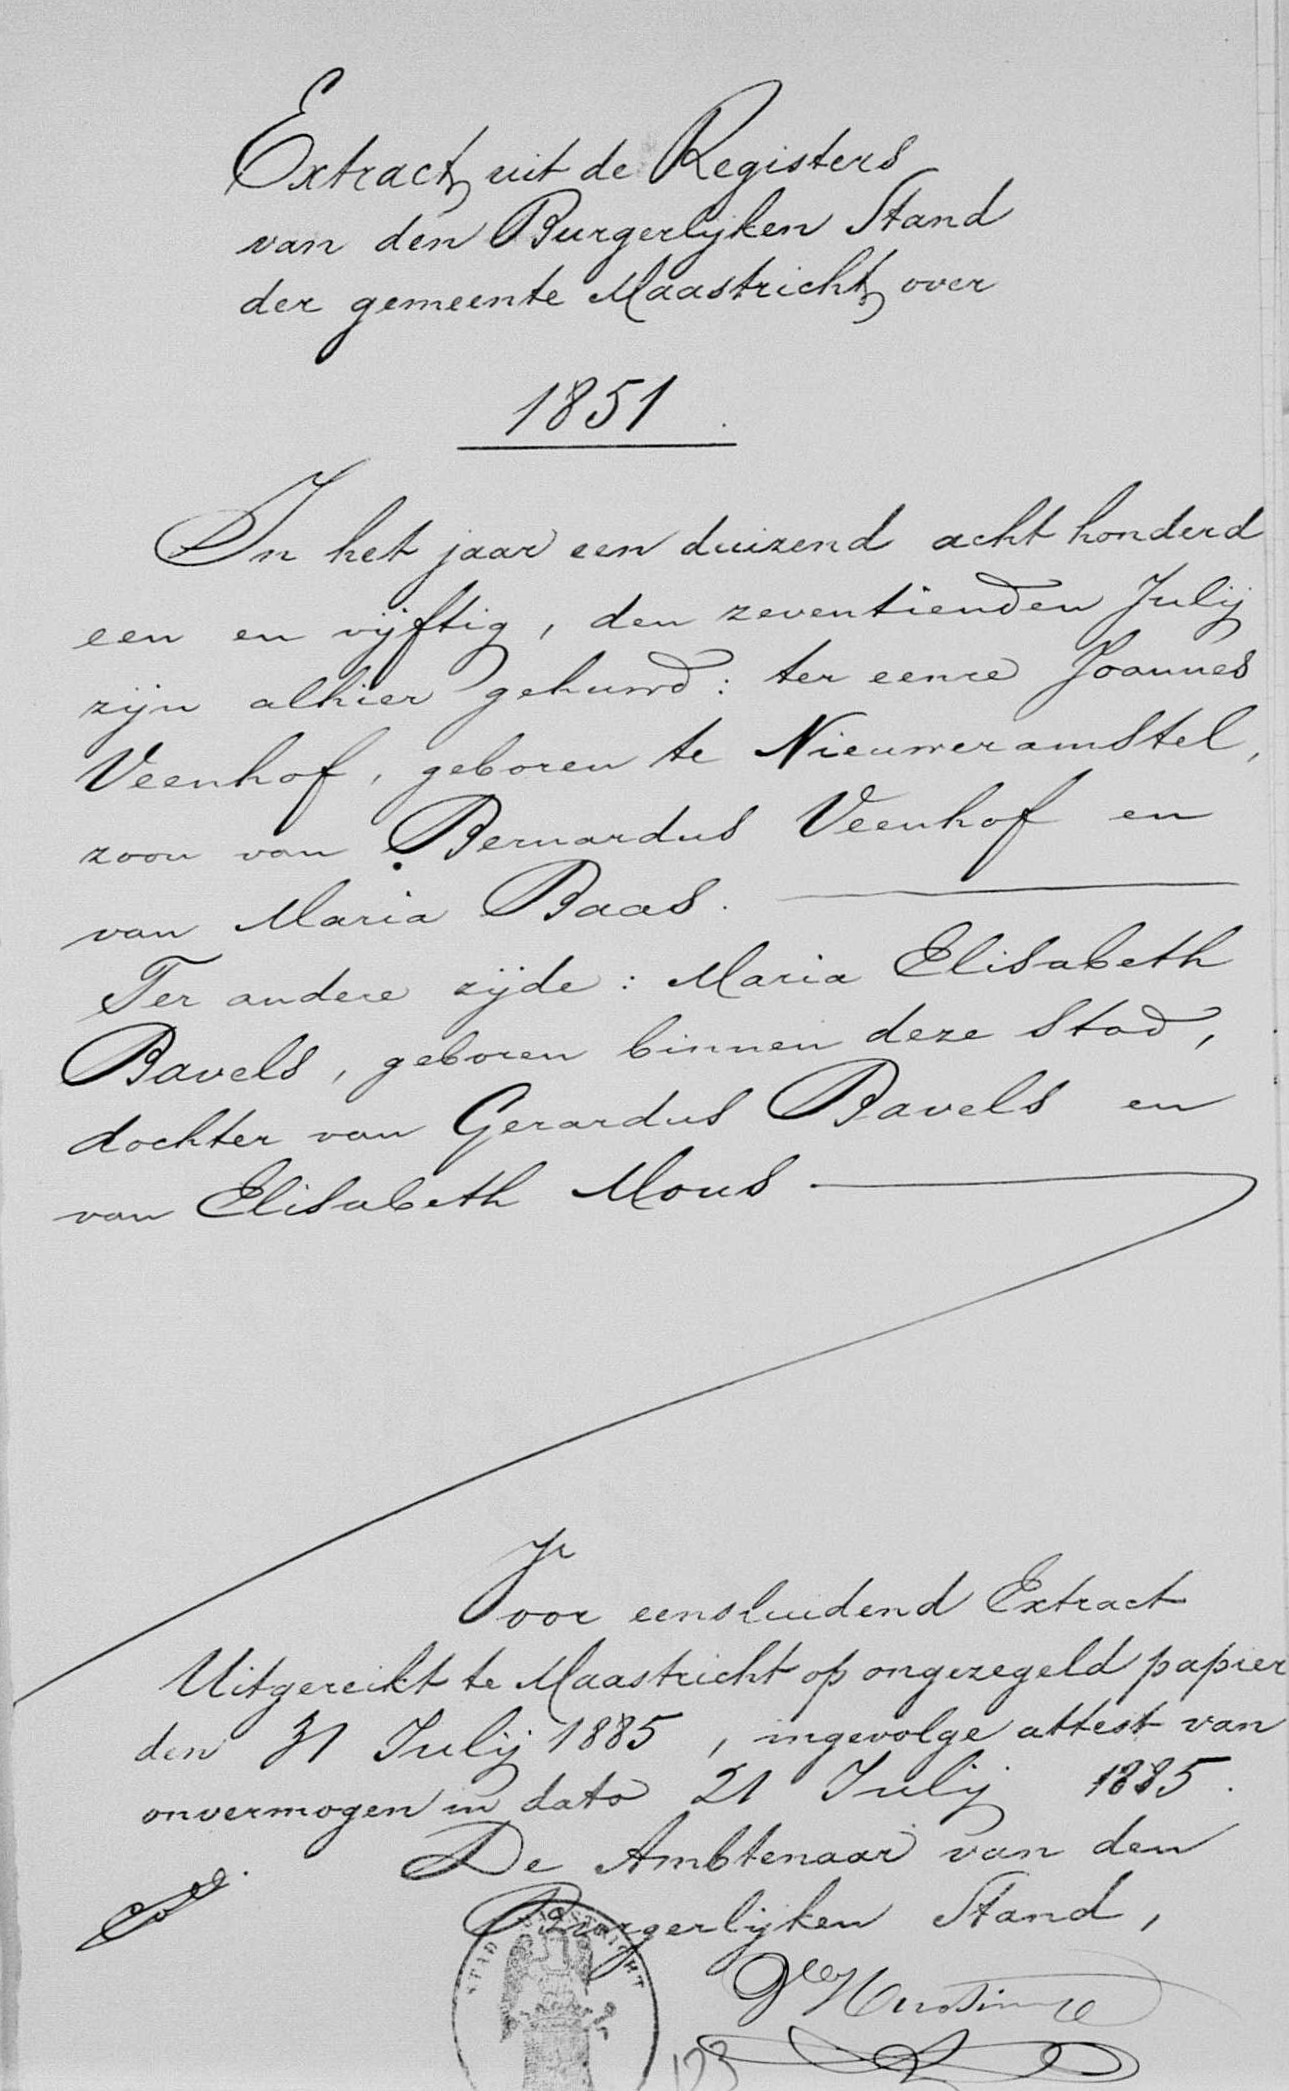 Extract uit de Registers
van den Burgerlijken Stand
der gemeente Maastricht over
1851.
In het jaar een duizend acht honderd
een en vijftig, den zeventienden Julij
zijn alhier gehuwd: ter eenre Joannes
Veenhof, geboren te Nieuweramstel,
zoon van Bernardus Veenhof en
van Maria Baas.
Ter andere zijde: Maria Elisabeth
Bavels, geboren binnen deze stad,
dochter van Gerardus Bavels en
van Elisabeth Mous
Voor eensluidend Extract
Uitgereikt te Maastricht op ongezegeld papier
den 31 Julij 1885, ingevolge attest van
onvermogen in dato 21 Julij 1885.
De Ambtenaar van den
Burgerlijken Stand,
STAD MAASTRICHT
123